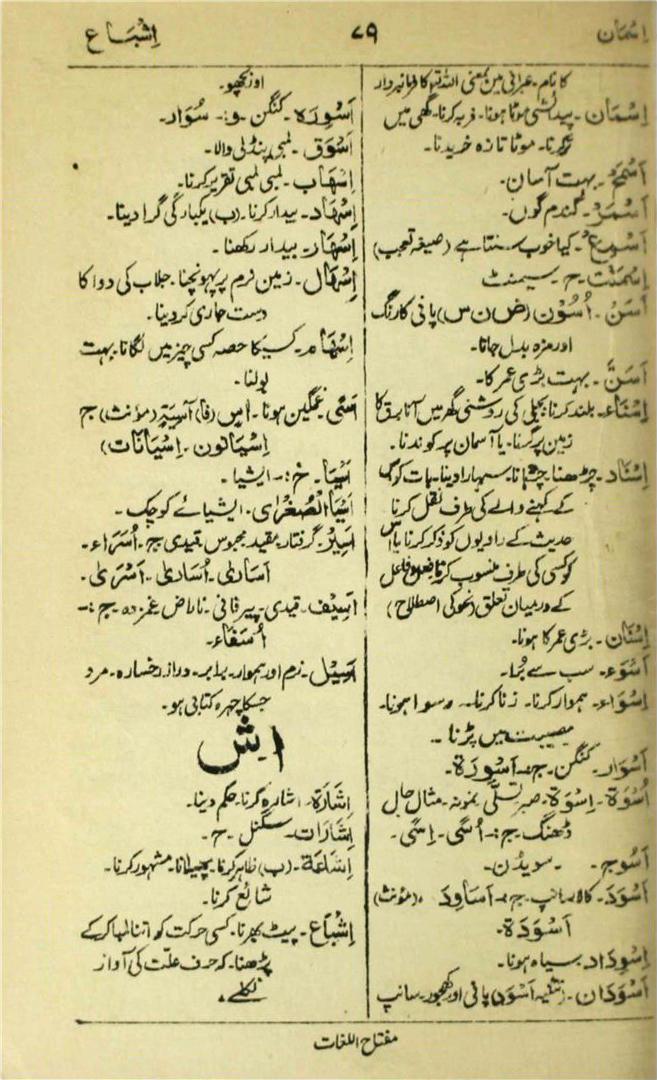 اِسْمَان
۷۹
اِشْبَاع
کا نام۔ عبرانی میں بمعنی اللہ تعالیٰ کا فرمانبردار
اِسْمَان۔ پیدائشی موٹا ہونا۔ فربہ کرنا۔ گھی میں
کرنا۔ موٹا تازہ خریدنا۔
اَسْمَح۔ بہت آسان۔
اَسْمَر۔ گندم گوں۔
کیا خوب سنتا ہے (صیغہ تعجب)
اِسْمَنْت۔ ح۔ سیمنٹ
اَسَنَ۔ اُسُوْن (ض ن س) پانی کا رنگ
اور مزہ بدل جانا۔
اَسَنّ۔ بہت بڑی عمر کا۔
اِسْنَاء۔ بلند کرنا۔ بجلی کی روشنی گھر میں آنا۔ برق کا
زمین پر گرنا۔ یا آسمان پر کوندنا۔
اِسْنَاد۔ چڑھنا۔ چڑھانا۔ سہارا دینا۔ بات کو اس
کے کہنے والے کی طرف نقل کرنا
حدیث کے راویوں کو ذکر کرنا یا اس
کو کسی کی طرف منسوب کرنا۔ فعل و فاعل
کے درمیان تعلق (نحو کی اصطلاح)
اِسْنَان۔ بڑی عمر کا ہونا۔
اَسْوَء۔ سب سے بُرا۔
اِسْوَاء۔ ہموار کرنا۔ زنا کرنا۔ رسوا ہونا۔
مصیبت میں پڑنا ۔
اَسْوَار۔ کنگن۔ ج:۔ اَسْوِرَة۔
اُسْوَة۔ اِسْوَة۔ صبر تسلّی نمونہ۔ مثال حال
ڈھنگ۔ ج:۔ اُسًی۔ اِسًی۔
اَسْوج۔ ۔ سویڈن۔
اَسْوَد۔ کالا سانپ۔ ج:۔ اَسَاوِد ۔ (مؤنث)
اَسْوَدَة۔
اِسْوِدَاد۔ سیاہ ہونا۔
اَسْوَدَان۔ (تثنیہ اَسْوَد) پانی اور کھجور۔ سانپ
اور بچھو۔
اَسْوِرَة۔ کنگن۔ و:۔ سُوَار۔
اَسْوَق۔ لمبی پنڈلی والا۔
اِسْهَاب۔ لمبی لمبی تقریر کرنا۔
اِسْهَاد۔ بیدار کرنا۔ (ب) یکبارگی گرا دینا۔
اِسْهَار۔ بیدار رکھنا۔
اِسْهَال۔ زمین نرم پر پہونچنا۔ جلاب کی دوا کا
دست جاری کر دینا۔
اِسْهَام۔ کسی کا حصہ کسی چیز میں لگانا۔ بہت
بولنا۔
غمگین ہونا۔ (فا) آسِیَة (مؤنث) ج
اِسْیَانُون۔ اِسْیَانَات)
اَسْیَا۔ خ:۔ ایشیا۔
اَسْیَا الصُّغْرَای۔ ایشیائے کوچک۔
اَسِیْر۔ گرفتار۔ مقید۔ محبوس۔ قیدی۔ ج:۔ اُسَرَاء۔
اَسَارٰی۔ اُسَارٰی۔ اَسْرٰی۔
اَسِیْف۔ قیدی۔ پیر فانی۔ ناراض۔ غمزدہ۔ ج:۔
اُسَفَاء۔
اَسِیْل۔ نرم اور ہموار۔ برابر۔ دراز رخسارہ۔ مرد
جسکا چہرہ کتابی ہو۔
ا۔ش
اِشَارَة۔ اشارہ کرنا۔ حکم دینا۔
اِشَارَات۔ سگنل۔ ح۔
اِشَاعَة۔ (ب) ظاہر کرنا۔ پھیلانا۔ مشہور کرنا۔
شائع کرنا۔
اِشْبَاع۔ پیٹ بھرنا۔ کسی حرکت کو اتنا لمبا کر کے
پڑھنا۔ کہ حرف علّت کی آواز
نکلے۔
مفتاح اللغات